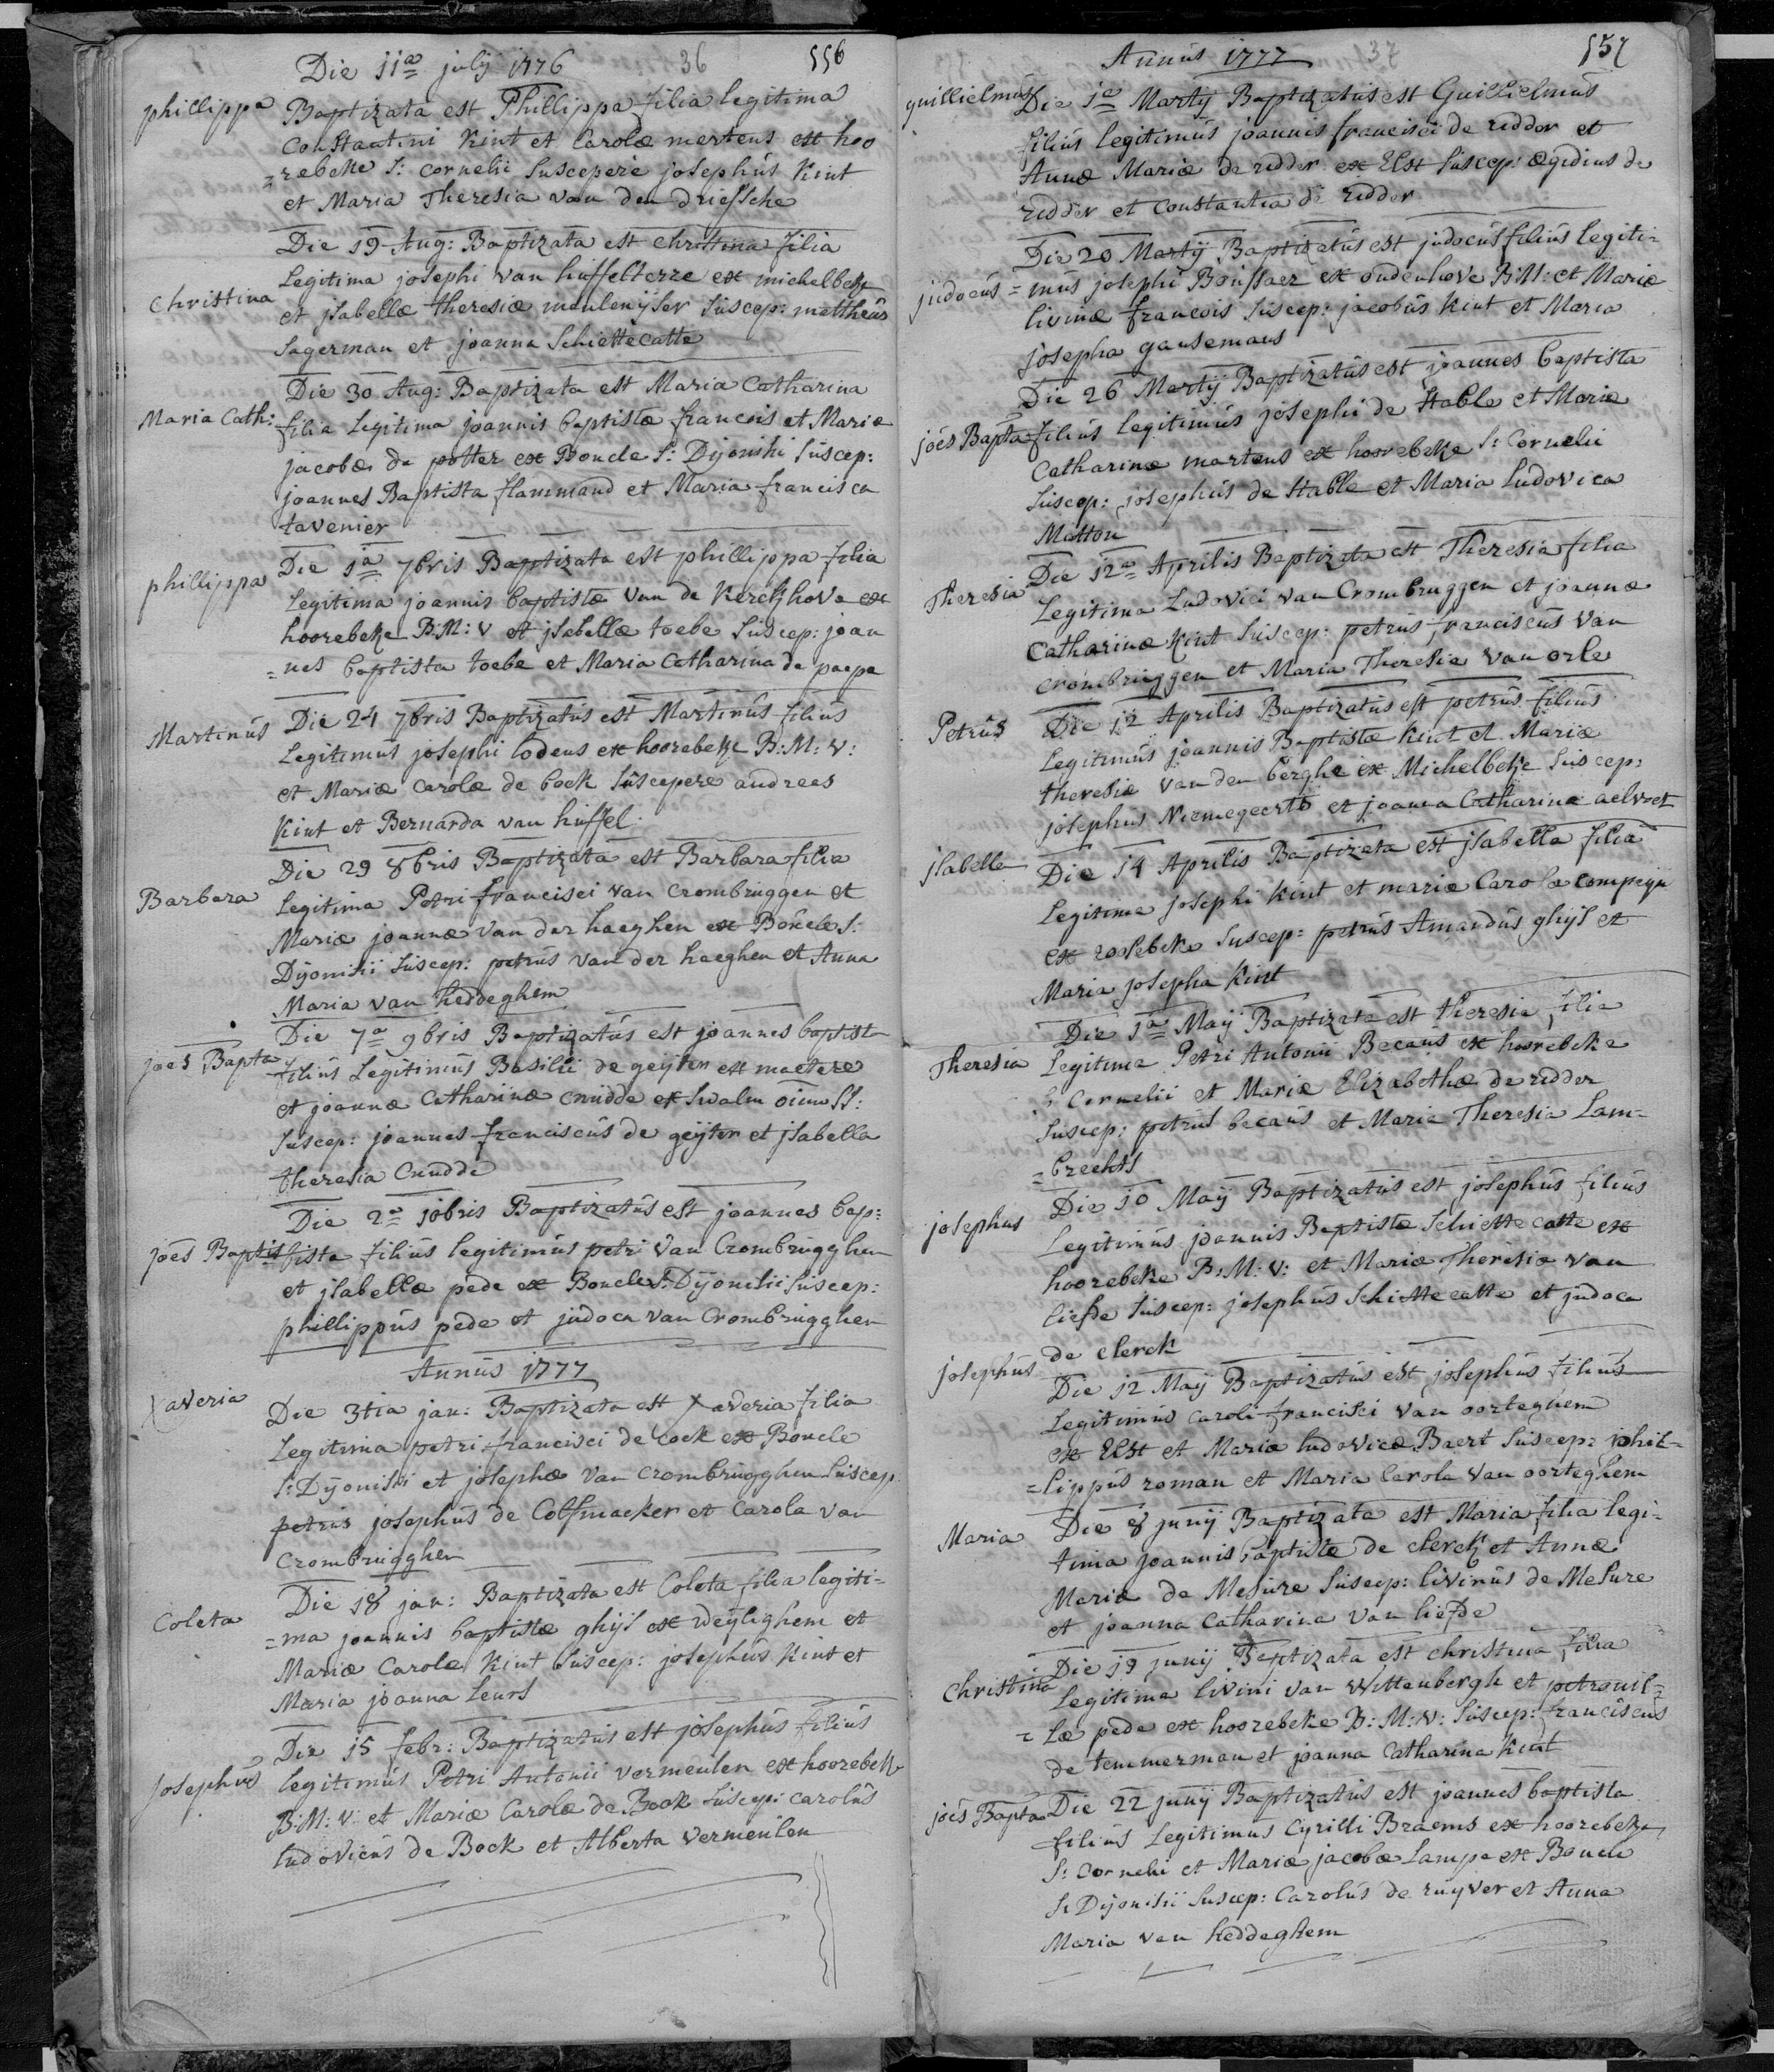 36 556
Die 11a july 1776
phillippa Baptizata est Phillippa filia legitima
Constantini Kint et Carolæ mertens ex hoo
=rebeke S: Cornelii Suscepere josephús Kint
et Maria Theresia van den driessche
Die 19 Aug: Baptizata est christina filia
Christina Legitima josephi van húffelterre ex michelbeke
et jsabellæ theresiæ meulenyser súscep: matthæús
Sagerman et joanna Schiettecatte
Die 30 Aug: Baptizata est Maria Catharina
Maria Cath: filia Legitima joannis baptistæ francois et Mariæ
jacobæ de potter ex Boucle S: Dijonisii súscep:
joannes Baptista flammand et Maria francisca
tavenier
Die 1a 7bris Baptizata est phillippa filia
phillippa Legitima joannis baptistæ van de Kerckhove ex
hoorebeke B:M:V et jsabellæ toebe súscep: joan
=nes baptista toebe et Maria Catharina de paepe
Die 24 7bris Baptizatús est Martinús filiús
Martinús Legitimús josephi lodens ex hoorebeke B:M:V:
et Mariæ Carolæ de bock súscepere andreas
Kint et Bernarda van húffel
Die 29 8bris Baptizata est Barbara filia
Barbara Legitima Petri francisci van Crombrúggen et
Mariæ joannæ van der haeghen ex Boúcle S:
Dijonisii súscep: petrús van der haeghen et Anna
Maria van heddeghem
Die 7a 9bris Baptizatús est joannes baptista
joes Bapta filiús Legitimús Basilii de geijter ex maetere
et joannæ Catharinæ cnúdde ex Swalm oium SS:
súscep: joannes franciscús de geijter et jsabella
theresia Cnúdde
Die 2a 10bris Baptizatús est joannes bap=
joes Baptis tista filiús legitimús petri van Crombrúgghen
et jsabellæ pede ex Boucle S: Dijonisii súscep:
phillippús pede et júdoca van Crombrúgghen
Annús 1777
Xaveria Die 3tia jan: Baptizata est Xaveria filia
Legitima petri francisci de Cock ex Boucle
S: Dijonisii et josephæ van Crombrúgghen súscep
petrús josephús de Colfmacker et Carola van
Crombrúgghen
Die 18 jan: Baptizata est Coleta filia legiti=
Coleta =ma joannis baptistæ ghijs ex Weijleghem et
Mariæ Carolæ Kint súscep: josephús Kint et
Maria joanna Leurs
Die 15 febr: Baptizatús est josephús filiús
Josephús legitimús Petri Antonii vermeulen ex hoorebeke
B:M:V: et Mariæ Carolæ de Bock súscep: carolús
ludovicús de Bock et Alberta vermeulen
Annús 1777 37 557
guillielmús Die 1a Martij Baptizatús est Guillielmús
filiús legitimús joannis francisci de ridder et
Annæ Mariæ de ridder ex Elst súscep: ægidius de
ridder et Constantia de ridder
Die 20 Martij Baptizatús est júdocús filiús legiti=
júdocús =mús josephi Boússaer ex oudenhove B:M: et Mariæ
livinæ francois súscep: jacobús Kint et Maria
josepha gansemans
Die 26 Martij Baptizatús est joannes baptista
joes Bapta filiús legitimús josephi de Stable et Mariæ
Catharinæ martens ex hoorebeke S: Cornelii
Súscep: josephús de Stable et Maria Ludovica
Matton
Die 12a Aprilis Baptizata est Theresia filia
Theresia Legitima Ludovici van Crombruggen et joannæ
Catharinæ Kint súscep: petrús franciscús van
crombrúggen et Maria Theresia van orle
Petrús Die 12 Aprilis Baptizatús est petrús filiús
Legitimús joannis Baptistæ Kint et Mariæ
theresiæ van den berghe ex Michelbeke súscep:
josephus Niemegeerts et joanna Catharina aelvoet
jsabelle Die 14 Aprilis Baptizata est jsabella filia
Legitima josephi Kint et mariæ Carolæ compeijn
ex roosebeke súscep: petrús Amandús ghijs et
Maria josepha Kint
Die 1a Maij Baptizata est theresia filia
Theresia Legitima Petri Antonii Becaús ex hoorebeke
S: Cornelii et Mariæ Elizabethæ de ridder
súscep: petrús becaús et Maria Theresia Lam=
=brechts
Die 10 Maij Baptizatús est josephús filiús
josephus Legitimús joannis Baptistæ Schiettecatte ex
hoorebeke B:M:V: et Mariæ Theresiæ van
liefde súscep: josephús Schiettecatte et júdoca
de clerck
josephús Die 12 Maij Baptizatús est josephús filiús
Legitimús Caroli francisci van oorteghem
ex Elst et Mariæ ludovicæ Baert súscep: phil=
=lippús roman et Maria Carola van oorteghem
Maria Die 8 junij Baptizata est Maria filia legi=
tima joannis baptistæ de clerck et Annæ
Mariæ de Mesúre súscep: livinús de Mesure
et joanna Catharina van liefde
Die 19 junij Baptizata est christina filia
Christina Legitima livini van Wittenbergh et petronil=
=læ pede ex hoorebeke B:M:V: súscep: franciscús
de temmerman et joanna Catharina Kint
joes Bapta Die 22 junij Baptizatús est joannes baptista
filiús Legitimus Cyrilli Braems ex hoorebeke
S: Cornelii et Mariæ jacobæ Lampe ex Boucle
S: Dijonisii súscep: Carolús de ruyver et Anna
Maria van heddeghem